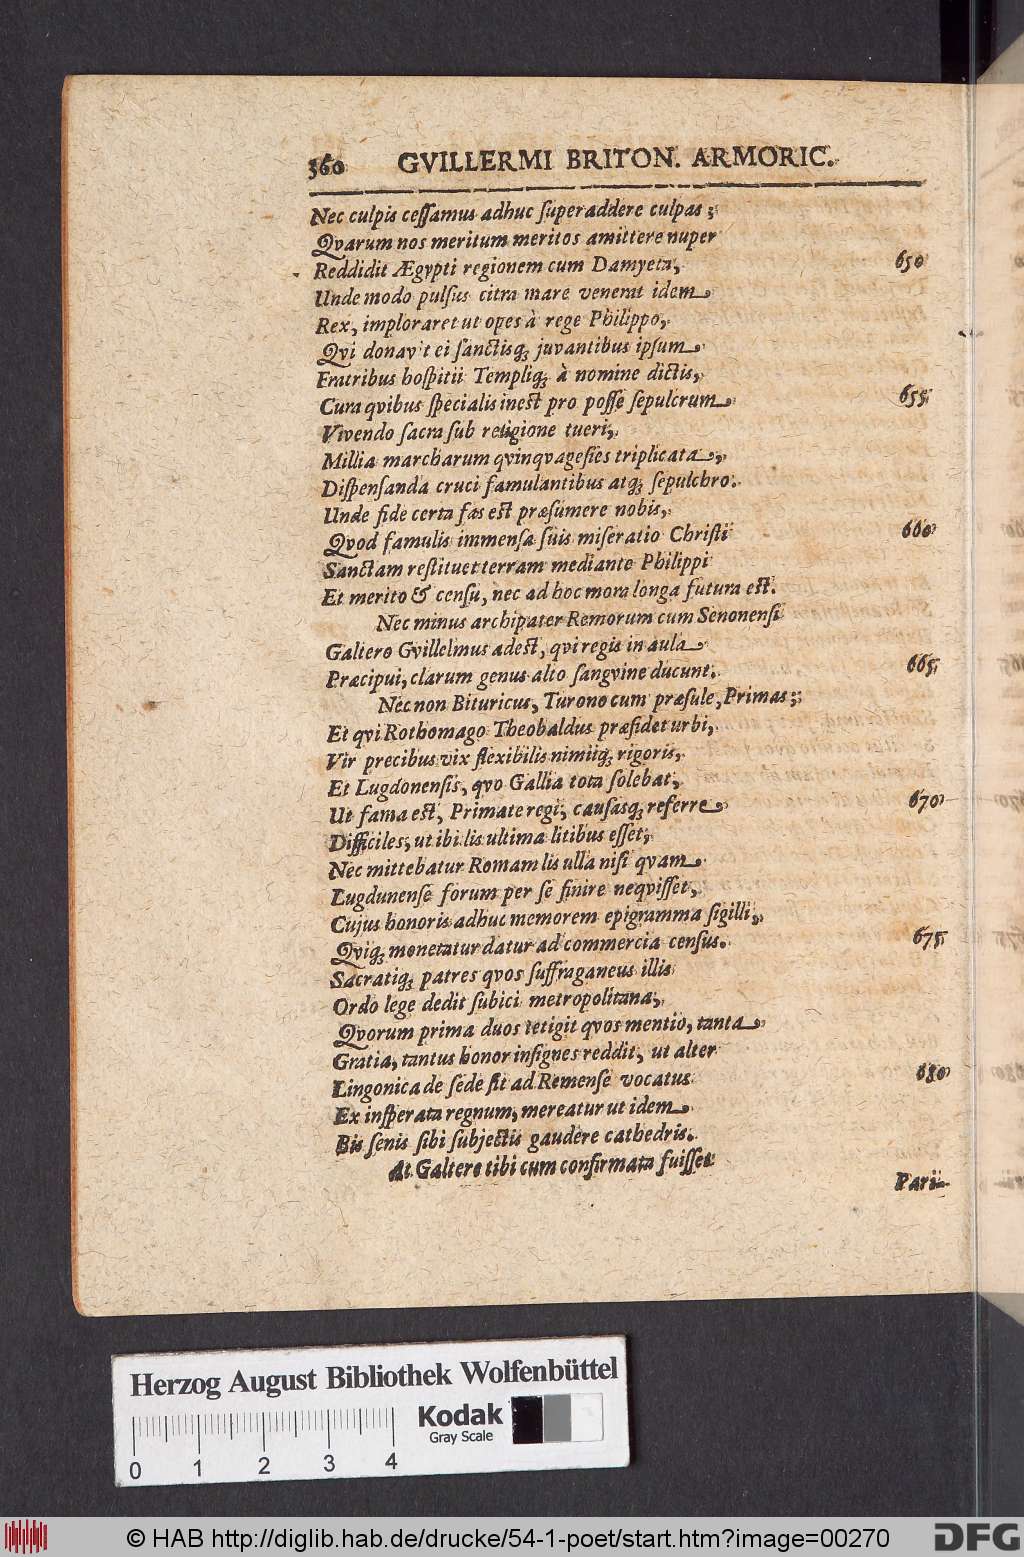 360 GVILLERMI BRITON. ARMORIC.
Nec culpis cessamus adhuc superaddere culpas;
Qvarum nos meritum meritos amittere nuper
Reddidit Ægypti regionem cum Damyeta, 650
Unde modo pulsus citra mare venerat idem
Rex, imploraret ut opes à rege Philippo,
Qvi donavit ei sanctisq; juvantibus ipsum
Fratribus hospitii Templiq; à nomine dictis,
Cura qvibus specialis inest pro posse sepulcrum 655
Vivendo sacra sub religione tueri,
Millia marcharum qvinqvagesies triplicata,
Dispensanda cruci famulantibus atq; sepulchro.
Unde fide certa fas est præsumere nobis,
Qvod famulis immensa suis miseratio Christi 660
Sanctam restituet terram mediante Philippi
Et merito & censu, nec ad hoc mora longa futura est.
Nec minus archipater Remorum cum Senonensi
Galtero Gvillelmus adest, qvi regis in aula
Præcipui, clarum genus alto sangvine ducunt. 665
Nec non Bituricus, Turono cum præsule, Primas;
Et qvi Rothomago Theobaldus præsidet urbi,
Vir precibus vix flexibilis nimiiq; rigoris,
Et Lugdonensis, qvo Gallia tota solebat,
Ut fama est, Primate regi, causasq; referre 670
Difficiles, ut ibi lis ultima litibus esset,
Nec mittebatur Romam lis ulla nisi qvam
Lugdunense forum per se finire neqvisset,
Cujus honoris adhuc memorem epigramma sigilli,
Qviq; monetatur datur ad commercia census. 675
Sacratiq; patres qvos suffraganeus illis
Ordo lege dedit subici metropolitana,
Qvorum prima duos tetigit qvos mentio, tanta
Gratia, tantus honor insignes reddit, ut alter
Lingonica de sede sit ad Remense vocatus 680
Ex insperata regnum, mereatur ut idem
Bis senis sibi subjectis gaudere cathedris.
At Galtere tibi cum confirmata fuisset
Pari-
Herzog August Bibliothek Wolfenbüttel
Kodak
Gray Scale
0 1 2 3 4
© HAB http://diglib.hab.de/drucke/54-1-poet/start.htm?image=00270
DFG